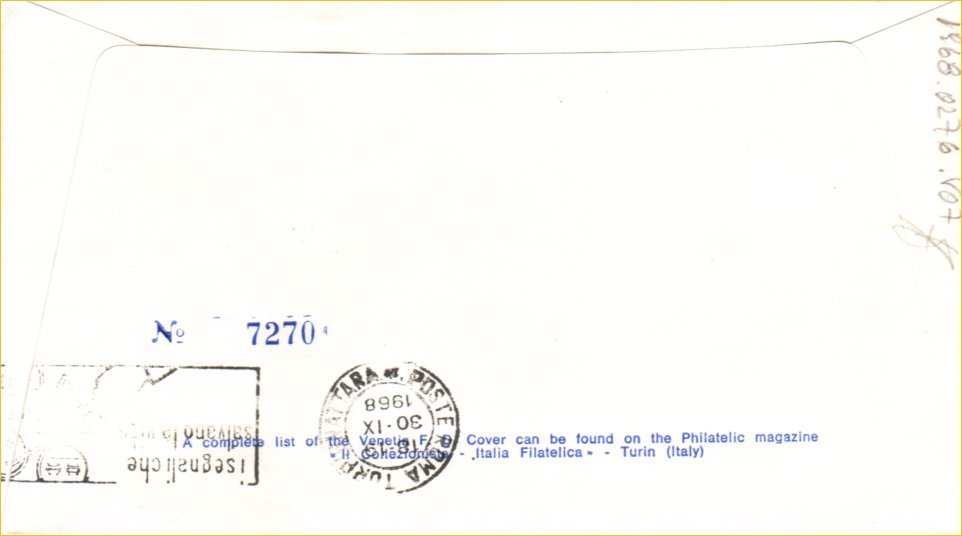 1968.0276.V07
Nº 7270
POSTE ROMA
1968
30·IX
18-19
isegnaliche
salvano la
A complete list of the Venetia F. D. Cover can be found on the Philatelic magazine
« Il Collezionista - Italia Filatelica » - Turin (Italy)